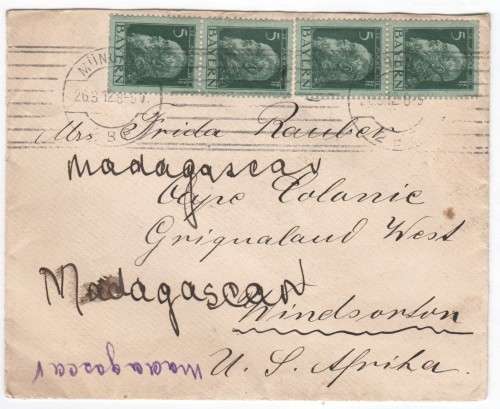 5 BAYERN 5 BAYERN 5 BAYERN 5 BAYERN
26.3.12.8-9
Mrs Frida Rauber
Madagascar
Cape Colonie
Griqualand West
Madagascar
Windsorton
U. S. Afrika.
Madagascar